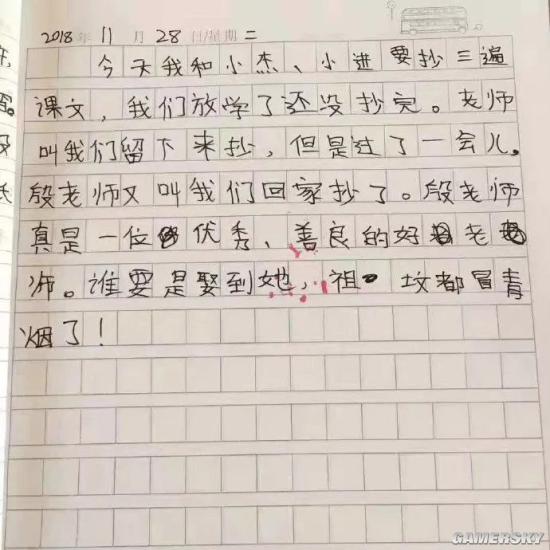 2018年11月28日/星期二
今天我和小杰、小进要抄三遍
课文，我们放学了还没抄完。老师
叫我们留下来抄，但是过了一会儿。
殷老师又叫我们回家抄了。殷老师
真是一位优秀、善良的好老
师。谁要是娶到她，祖坟都冒青
烟了！
GAMERSKY